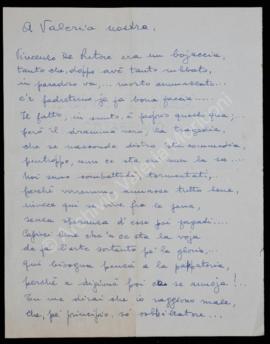 A Valeria nostra,
Vincenzo De Pretore era un bojaccia,
tanto che, doppo avé tanto rubbato,
in paradiso va... morto ammazzato...
c'è padreterno je fa bona faccia....
'Sto fatto, in sunto, è proprio questo qua;
però il dramma vero, la tragedia,
che se nasconde dietro sta commedia,
purtroppo, nun ce sta chi nun la sa....
Noi semo combattuti, tormentati,
perché vorremmo, annasse tutto bene,
invece qui se vive fra le pene,
senza speranza d'esse poi pagati....
Capisci bene che a ce sta la voja
de fa l'arte sortanto pe' la gloria,...
qui bisogna penzà a la pappatoria,
perché a digiuno poi se smoja!..
Tu me dirai che io raggiono male,
che, pe' principio, so' sobbillatore....